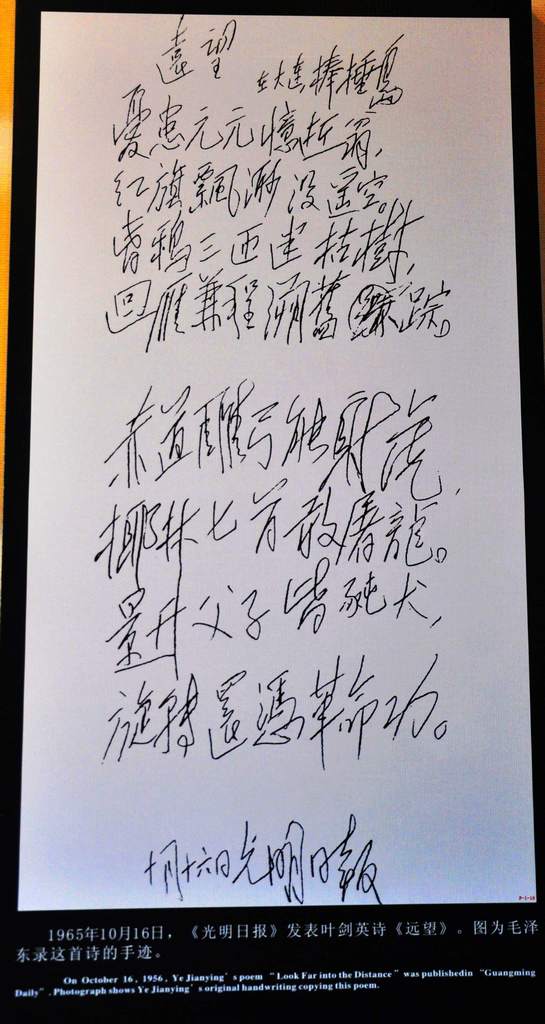 远望 在大连棒棰島
憂患元元憶逝翁,
红旗飘渺没遥空。
昏鸦三匝迷枯樹,
回雁兼程溯舊踪。
赤道雕弓能射虎,
椰林匕首敢屠龍。
景升父子皆豚犬,
旋轉還憑革命功。
十月十六日光明日報
1965年10月16日，《光明日报》发表叶剑英诗《远望》。图为毛泽
东录这首诗的手迹。
On October 16, 1956, Ye Jianying's poem "Look Far into the Distance" was publishedin "Guangming
Daily". Photograph shows Ye Jianying's original handwriting copying this poem.